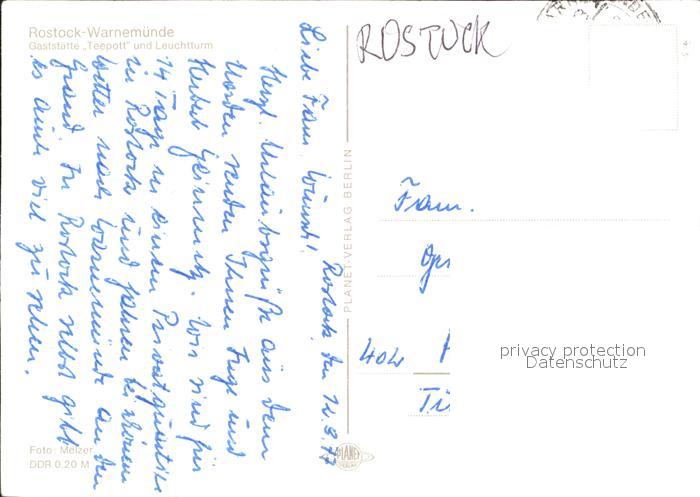 Rostock-Warnemünde
Gaststätte „Teepott" und Leuchtturm
Liebe Fam. Wünsch!
Rostock, den 12.9.77
Herzl. Urlaubsgrüße aus dem
Norden senden Ihnen Inge und
Herbert Wir sind für
14 Tage in einem Privatquartier
in Rostock und fahren bei schönem
Wetter nach Warnemünde an den
Strand. In Rostock selbst gibt
es auch viel zu sehen.
Foto: Melzer
DDR 0.20 M
PLANET-VERLAG BERLIN
PLANET
VERLAG
ROSTOCK
Fam.
402
privacy protection
Datenschutz